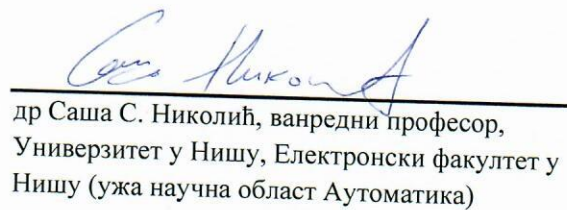 др Саша С. Николић, ванредни професор,
Универзитет у Нишу, Електронски факултет у
Нишу (ужа научна област Аутоматика)